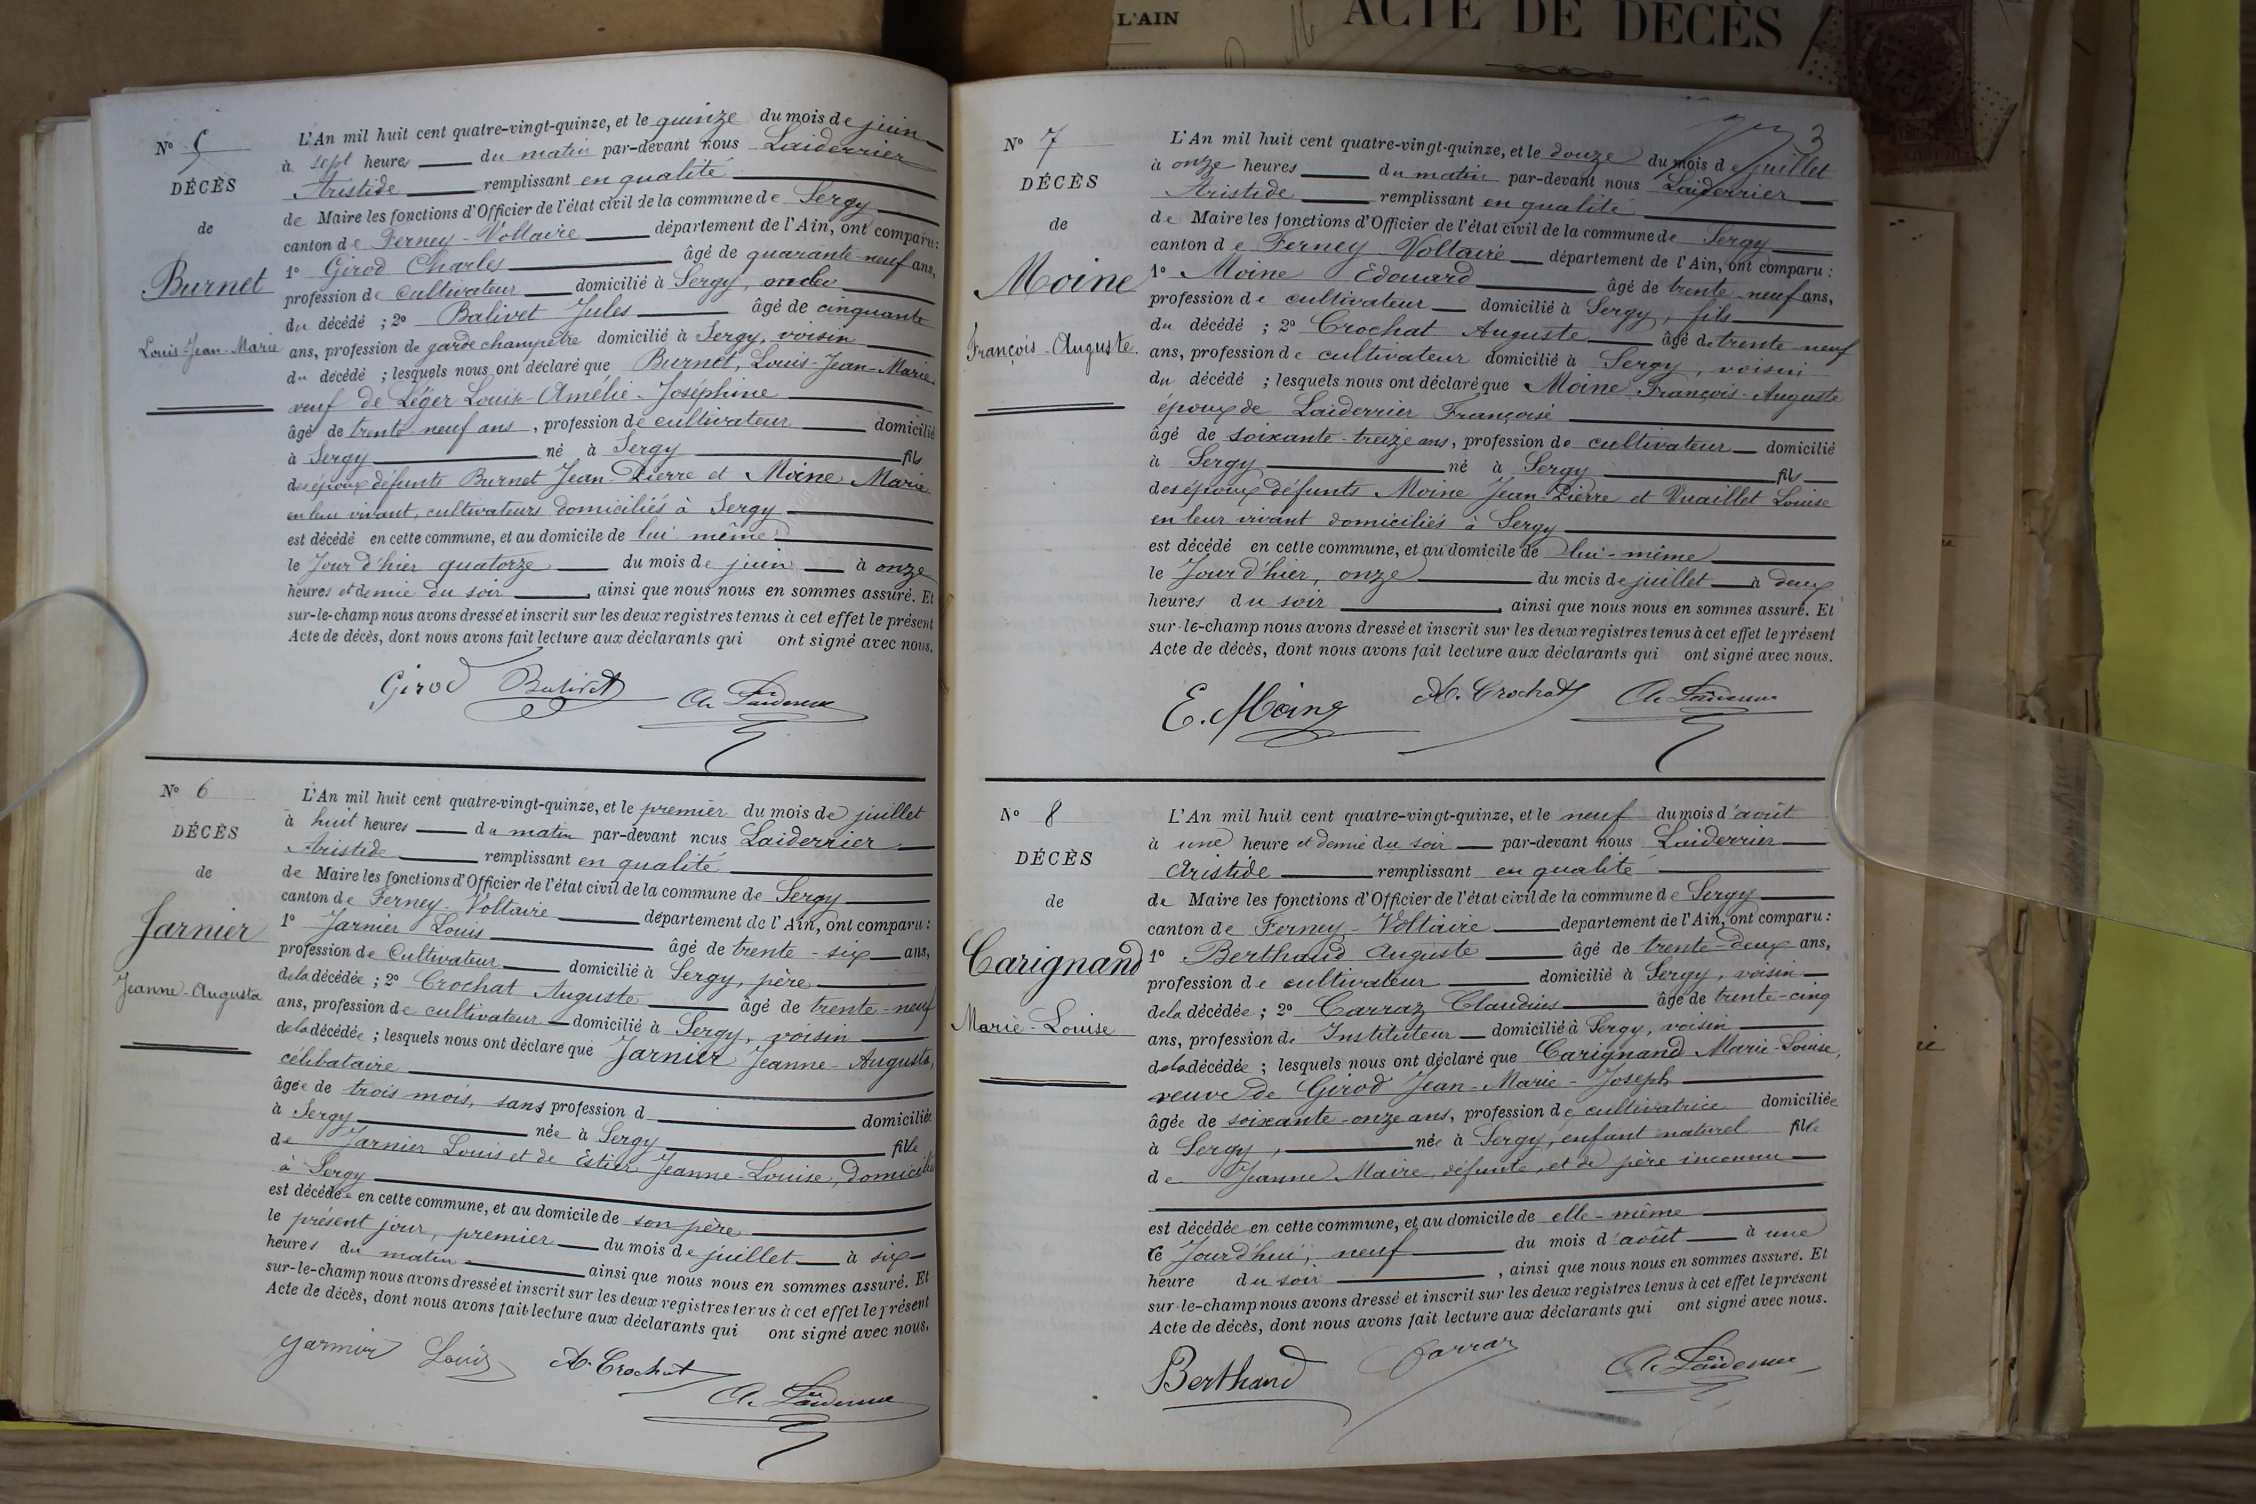 L'AIN
ACTE DE DÉCÈS
N° 5
DÉCÈS
de
Burnet
Louis-Jean-Marie
L'An mil huit cent quatre-vingt-quinze, et le quinze du mois de juin
à sept heures du matin par-devant nous Laiderrier
Aristide remplissant en qualité
de Maire les fonctions d'Officier de l'état civil de la commune de Sergy
canton de Ferney-Voltaire département de l'Ain, ont comparu :
1° Girod Charles âgé de quarante-neuf ans,
profession de cultivateur domicilié à Sergy, oncle
du décédé ; 2° Balivet Jules âgé de cinquante
ans, profession de garde champêtre domicilié à Sergy, voisin
du décédé ; lesquels nous ont déclaré que Burnet, Louis-Jean-Marie
veuf de Léger Louise-Amélie-Joséphine
âgé de trente-neuf ans, profession de cultivateur domicilié
à Sergy né à Sergy fils
des époux défunts Burnet Jean-Pierre et Moine Marie
en leur vivant, cultivateurs domiciliés à Sergy
est décédé en cette commune, et au domicile de lui même
le Jour d'hier quatorze du mois de juin à onze
heures et demie du soir, ainsi que nous nous en sommes assuré. Et
sur-le-champ nous avons dressé et inscrit sur les deux registres tenus à cet effet le présent
Acte de décès, dont nous avons fait lecture aux déclarants qui ont signé avec nous.
Girod Balivet Ar. Laiderrier
N° 6
DÉCÈS
de
Jarnier
Jeanne-Augusta
L'An mil huit cent quatre-vingt-quinze, et le premier du mois de juillet
à huit heures du matin par-devant nous Laiderrier
Aristide remplissant en qualité
de Maire les fonctions d'Officier de l'état civil de la commune de Sergy
canton de Ferney-Voltaire département de l'Ain, ont comparu :
1° Jarnier Louis âgé de trente-six ans,
profession de Cultivateur domicilié à Sergy, père
de la décédée ; 2° Crochat Auguste âgé de trente-neuf
ans, profession de cultivateur domicilié à Sergy, voisin
de la décédée ; lesquels nous ont déclaré que Jarnier Jeanne-Augusta,
célibataire
âgée de trois mois, sans profession d domiciliée
à Sergy née à Sergy fille
de Jarnier Louis et de Estier Jeanne-Louise, domiciliés
à Sergy
est décédée en cette commune, et au domicile de son père
le présent jour, premier du mois de juillet à six
heures du matin ainsi que nous nous en sommes assuré. Et
sur-le-champ nous avons dressé et inscrit sur les deux registres tenus à cet effet le présent
Acte de décès, dont nous avons fait lecture aux déclarants qui ont signé avec nous.
Jarnier Louis A. Crochat
Ar. Laiderrier
3
N° 7
DÉCÈS
de
Moine
François-Auguste.
L'An mil huit cent quatre-vingt-quinze, et le douze du mois de juillet
à onze heures du matin par-devant nous Laiderrier
Aristide remplissant en qualité
de Maire les fonctions d'Officier de l'état civil de la commune de Sergy
canton de Ferney Voltaire département de l'Ain, ont comparu :
1° Moine Edouard âgé de trente-neuf ans,
profession de cultivateur domicilié à Sergy, fils
du décédé ; 2° Crochat Auguste âgé de trente neuf
ans, profession de cultivateur domicilié à Sergy, voisin
du décédé ; lesquels nous ont déclaré que Moine François-Auguste
époux de Laiderrier Françoise
âgé de soixante-treize ans, profession de cultivateur domicilié
à Sergy né à Sergy fils
des époux défunts Moine Jean-Pierre et Vuaillet Louise
en leur vivant domiciliés à Sergy
est décédé en cette commune, et au domicile de lui-même
le Jour d'hier, onze du mois de juillet à deux
heures du soir, ainsi que nous nous en sommes assuré. Et
sur-le-champ nous avons dressé et inscrit sur les deux registres tenus à cet effet le présent
Acte de décès, dont nous avons fait lecture aux déclarants qui ont signé avec nous.
E. Moine A. Crochat Ar. Laiderrier
N° 8
DÉCÈS
de
Carignand
Marie-Louise
L'An mil huit cent quatre-vingt-quinze, et le neuf du mois d'août
à une heure et demie du soir par-devant nous Laiderrier
Aristide remplissant en qualité
de Maire les fonctions d'Officier de l'état civil de la commune de Sergy
canton de Ferney-Voltaire département de l'Ain, ont comparu :
1° Berthaud Auguste âgé de trente-deux ans,
profession de cultivateur domicilié à Sergy, voisin
de la décédée ; 2° Carraz Claudius âgé de trente-cinq
ans, profession de Instituteur domicilié à Sergy, voisin
de la décédée ; lesquels nous ont déclaré que Carignand Marie-Louise,
veuve de Girod Jean-Marie-Joseph
âgée de soixante-onze ans, profession de cultivatrice domiciliée
à Sergy, née à Sergy, enfant naturel fille
de Jeanne Maire, défunte, et de père inconnu
est décédée en cette commune, et au domicile de elle-même
le Jourd'hui, neuf du mois d'août à une
heure du soir, ainsi que nous nous en sommes assuré. Et
sur-le-champ nous avons dressé et inscrit sur les deux registres tenus à cet effet le présent
Acte de décès, dont nous avons fait lecture aux déclarants qui ont signé avec nous.
Berthaud Carraz Ar. Laiderrier